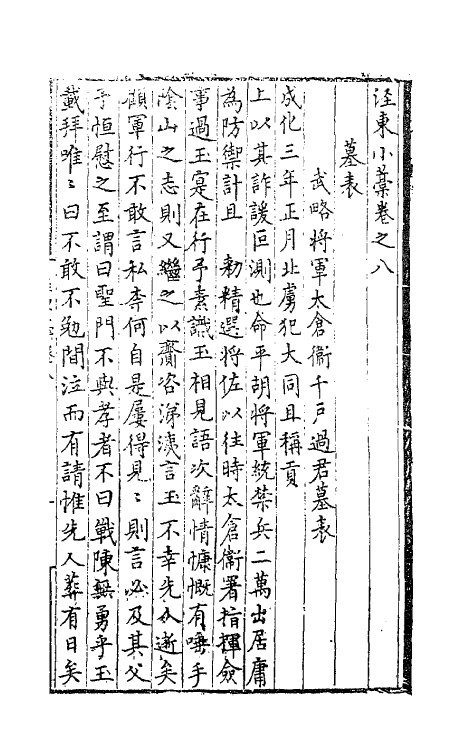 泾東小藁卷之八
墓表
武略將軍太倉衞千戶過君墓表
成化三年正月北虜犯大同且稱貢
上以其詐諼叵測也命平胡將軍統禁兵二萬出居庸
為防禦計且 勑精選將佐以往時太倉衞署指揮僉
事過玉寔在行予素識玉相見語次辭情慷慨有唾手
陰山之志則又繼之以齎咨涕洟言玉不幸先人逝矣
顧軍行不敢言私柰何自是屢得見〻則言必及其父
予恒慰之至謂曰聖門不與孝者不曰戰陳無勇乎玉
載拜唯〻曰不敢不勉間泣而有請惟先人葬有日矣